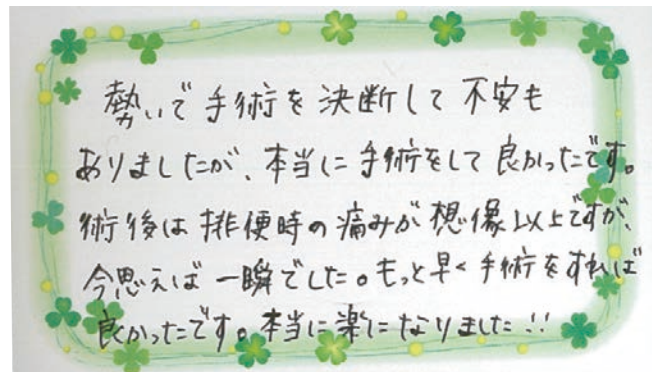 勢いで手術を決断して不安も
ありましたが、本当に手術をして良かったです。
術後は排便時の痛みが想像以上ですが、
今思えば一瞬でした。もっと早く手術をすれば
良かったです。本当に楽になりました!!